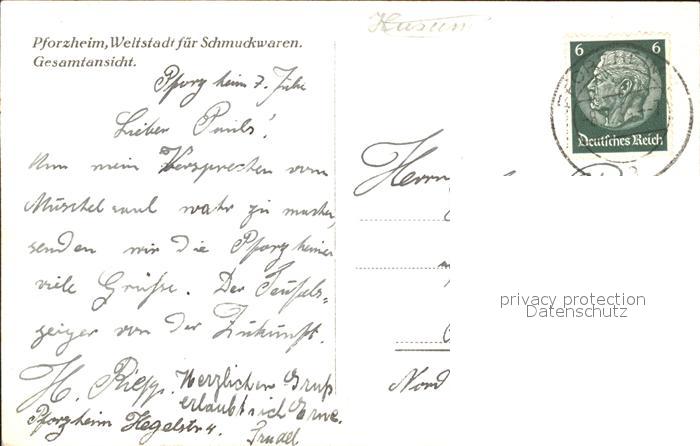 Pforzheim, Weltstadt für Schmuckwaren.
Gesamtansicht.
Husum
Pforzheim 7. Julie
Lieber Pauls!
Um mein Versprechen vom
Muschelsaal wahr zu machen,
senden wir die Pforzheimer
viele Grüße. Der Teufels-
geiger von der Zukunft.
H. Riepp. Herzlichen Gruß
erlaubt sich Erne.
Pforzheim Hegelstr 4.
Trudel
6 6
Deutsches Reich
Herrn
Nord
privacy protection
Datenschutz